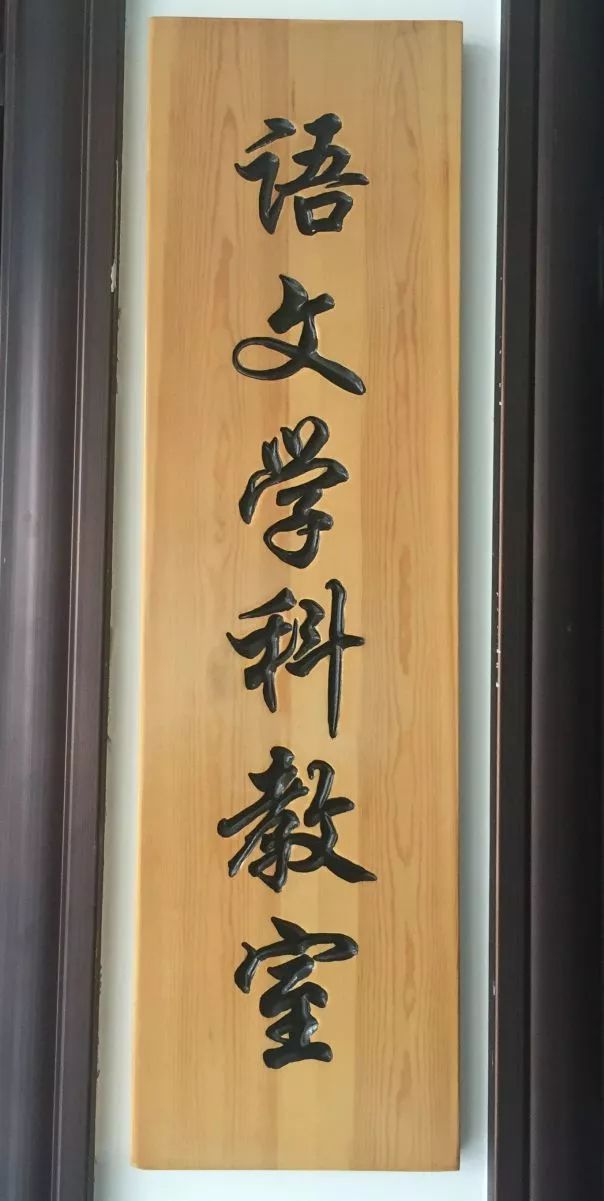 语文学科教室